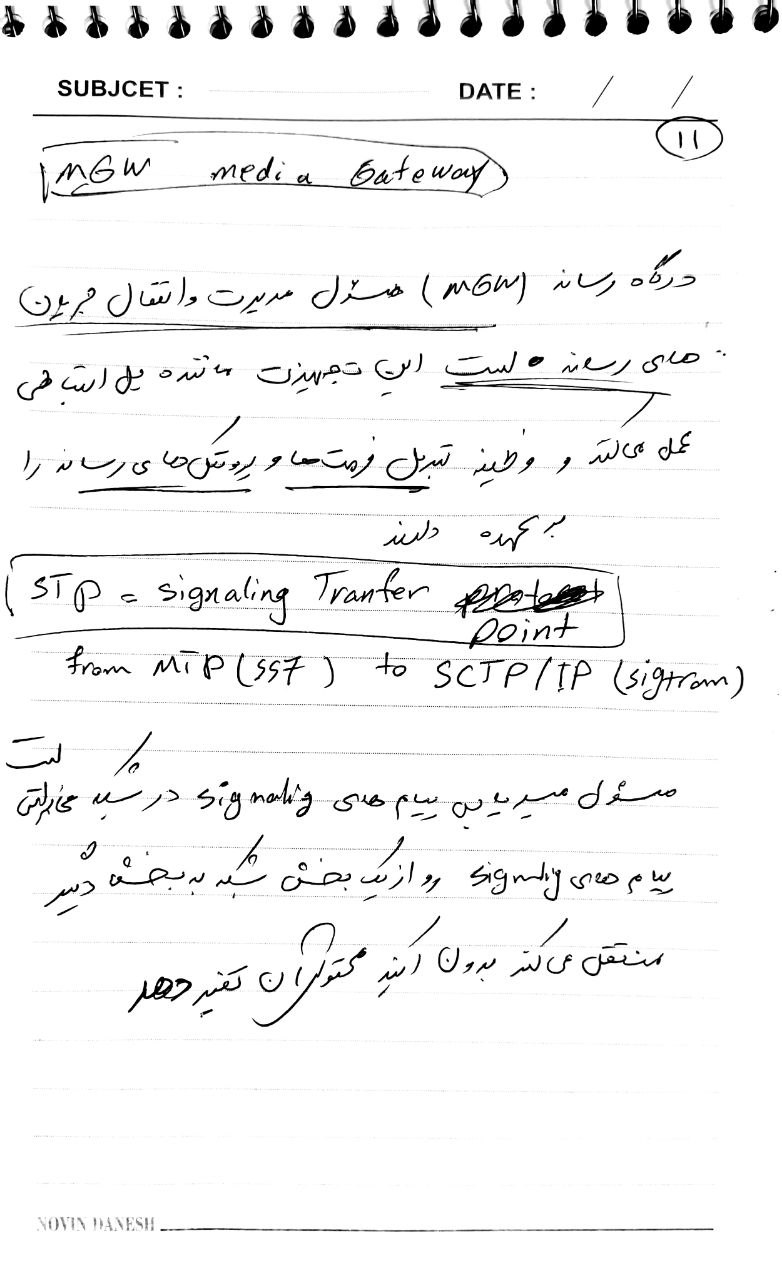 SUBJCET :
DATE : / /
11
MGW media Gateway
درگاه رسانه (MGW) مسئول مدیریت و انتقال جریان
های رسانه است این تجهیزات مانند پل ارتباطی
عمل می‌کند و وظیفه تبدیل فرمت‌ها و پروتکل‌های رسانه را
بر عهده دارند
STP = signaling Tranfer
point
from MTP (SS7) to SCTP/IP (sigtran)
مسئول مسیریابی پیام های signalig در شبکه مخابراتی است
پیام های signalig رو از یک بخش شبکه به بخش دیگر
منتقل می کند بدون اینکه محتوای آن تغییر دهد
NOVIN DANESH